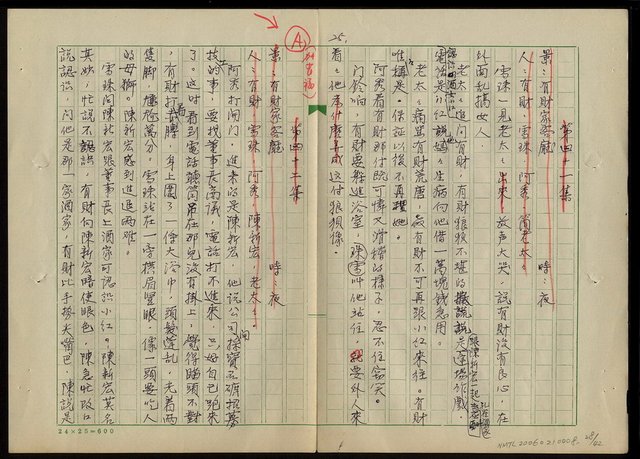 25.
第四十一集
景：有財家客廳　時：夜
人：有財 雪珠 阿秀 簡老太。
雪珠一見老太太出來，放聲大哭，說有財沒有良心，在
外面亂搞女人
老太太追問有財，有財狼狽不堪的
是逢場作戲，
小紅說媽媽生病向他借一萬塊錢急用。
老太太痛罵有財荒唐，嚴有財不可再跟小紅來往。有財
唯唯是，保証以後不再理她。
阿秀看有財那付既可憐又滑稽的樣子，忍不住竊笑。
門鈴响，有財要躲進浴室，雪珠叫他站住，要外人來
看看他為什麼弄成這付狼狽像。
A
第四十二集
景：有財家客廳　時：夜
人：有財 雪珠 阿秀 陳新宏，老太太。
阿秀打開門，進來的是陳新宏，他說公司
找的事，要找董事長商議，電話打不進來，只好自己跑來
了。這時看到電話聽筒吊在那兒沒有掛上，覺得苗頭不對
，有財打赤膊，身上圍了一條大浴巾，頭髮蓬亂，光着兩
隻脚，尷尬萬分。雪珠站在一旁橫眉豎眼，像一頭要吃人
的母獅。陳新宏感到進退兩難。
雪珠問陳新宏跟董事長上酒家可認識小紅。陳新宏莫名
其妙，忙說不認識，有財向陳新宏暗使眼色，陳急忙改口
說認識，問他是那一家酒家，有財比手按夫嘴巴，陳說是
24×25=600
NMTL20060210008
28/42